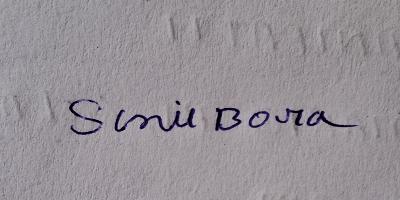 Sunil Bora